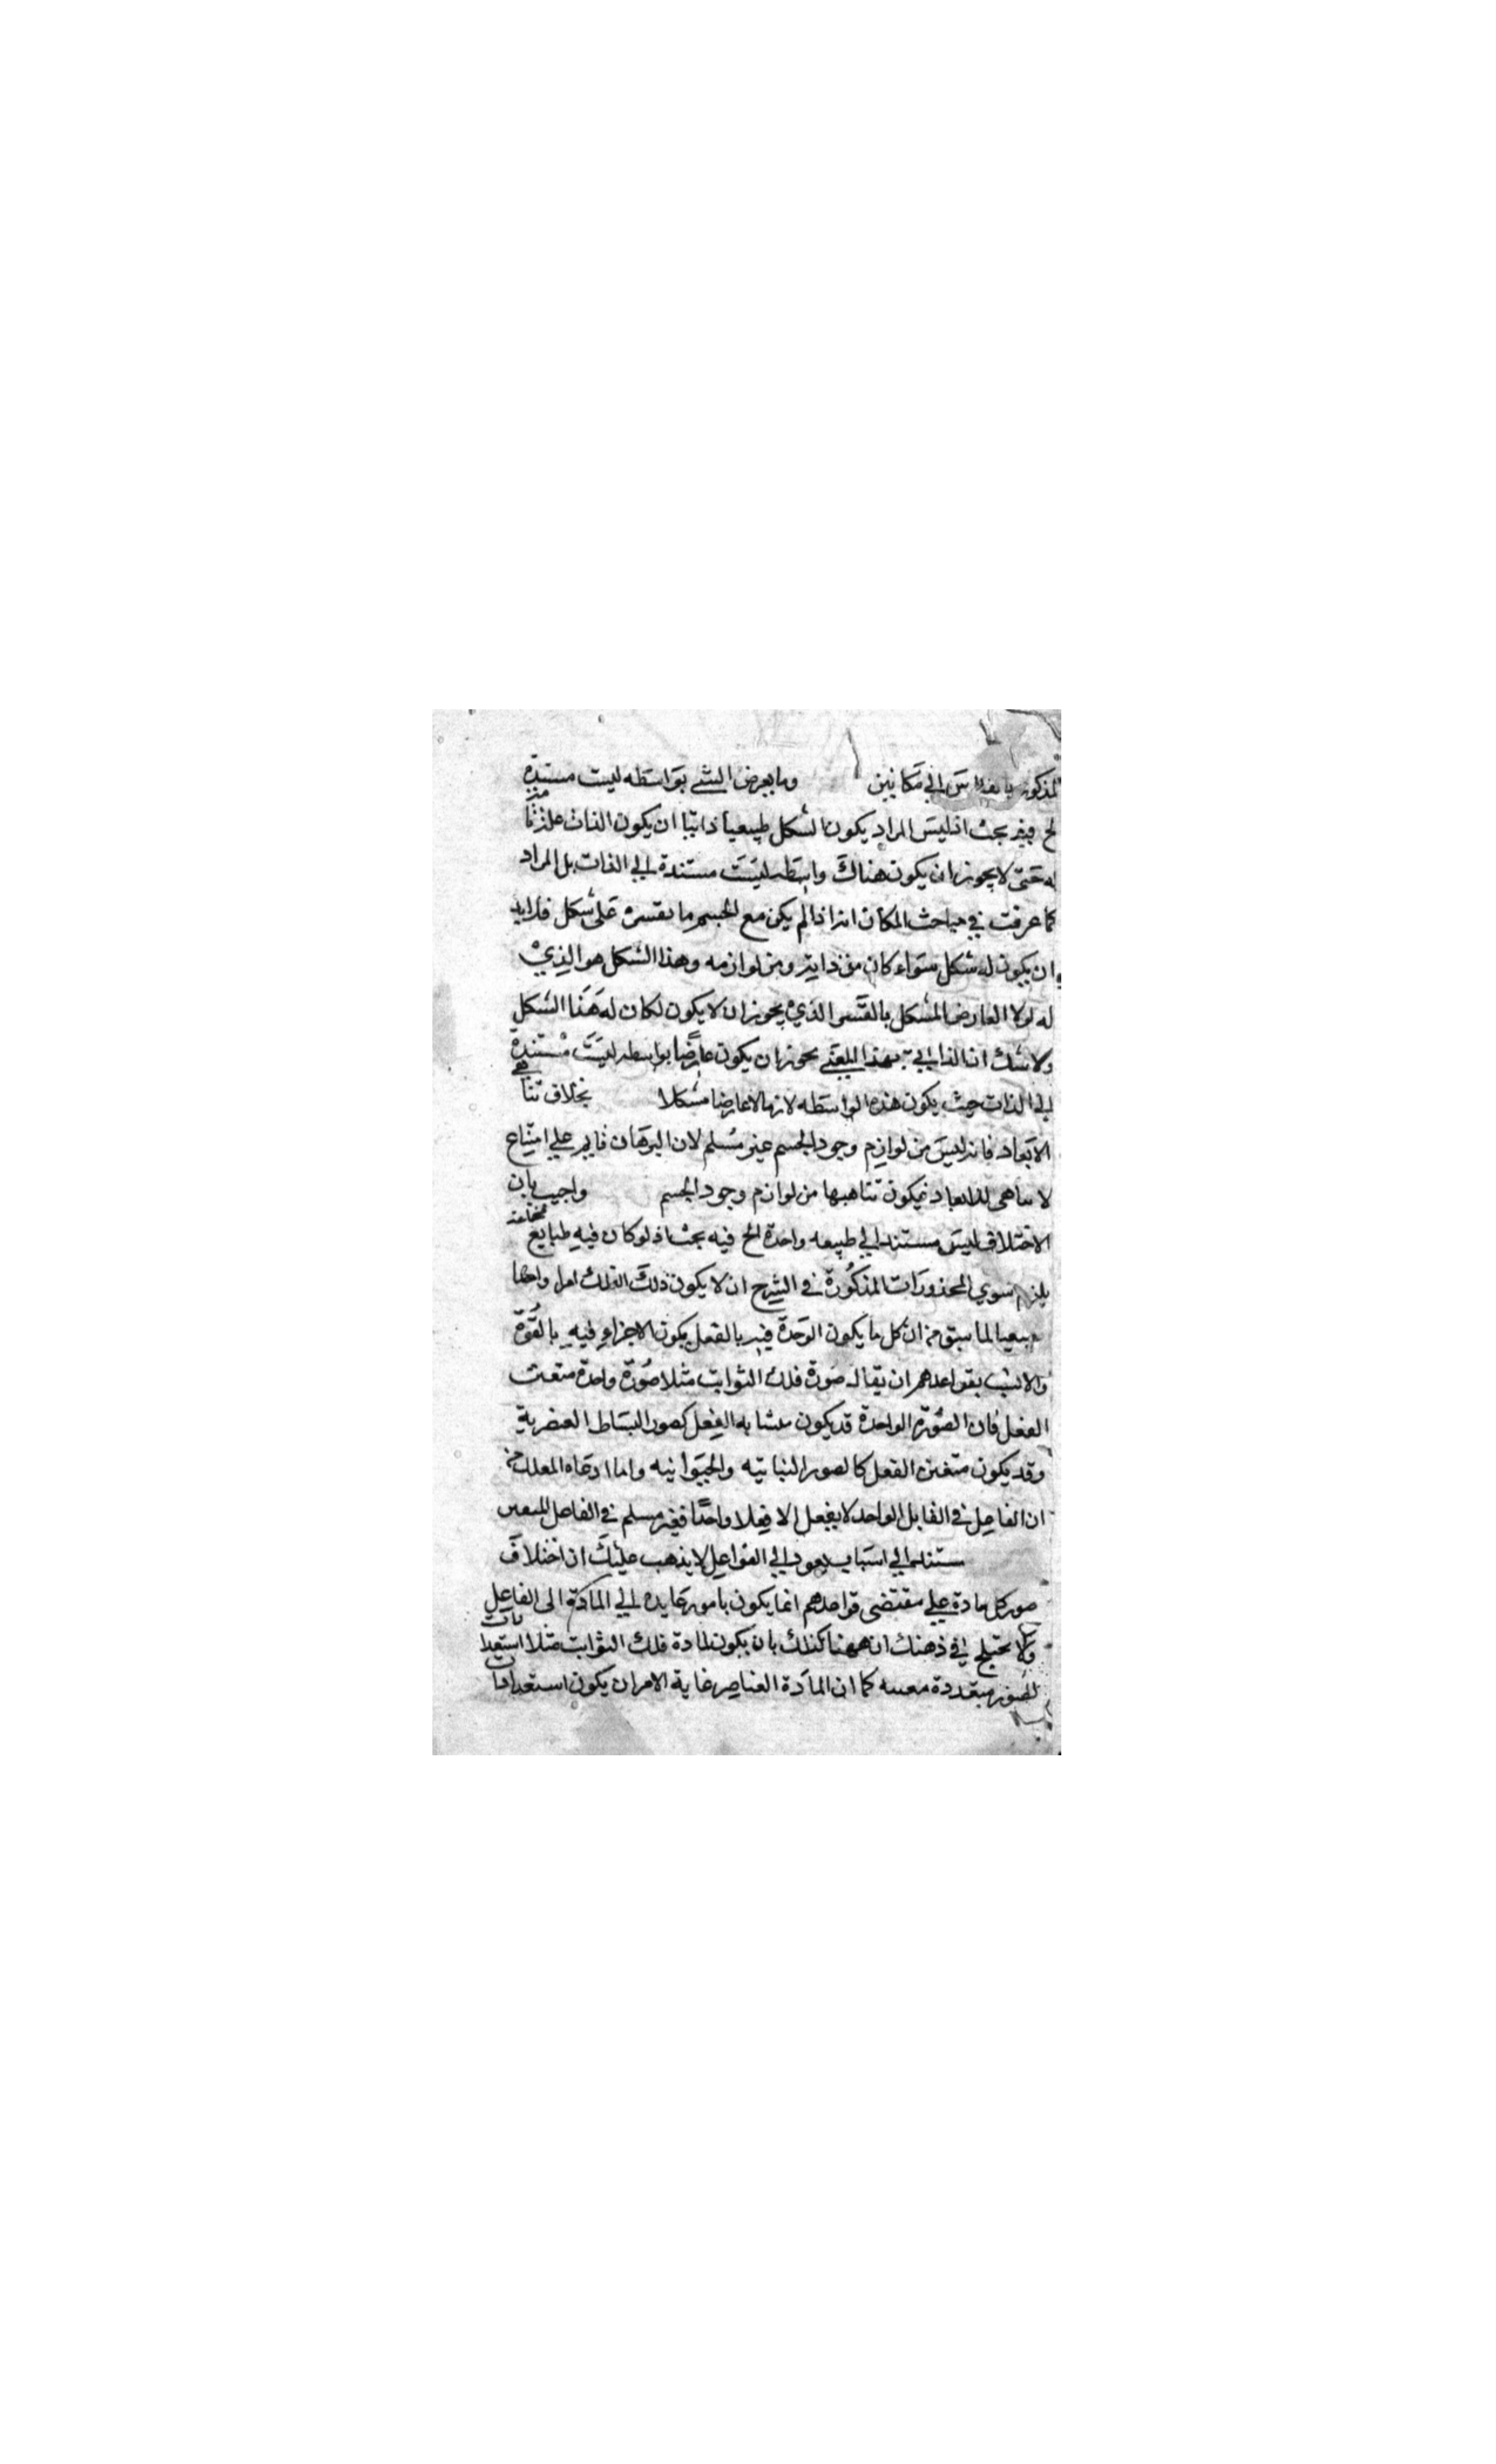 المذكور بالقياس الي مكانين وما يعرض الشي بواسطه ليست مستندة
الخ فيه بحث اذ ليس المراد بكون الشكل طبيعيا ذاتيا ان يكون الذات ملزوما
له حتى لا يجوز ان يكون هناك واسطه ليست مستندة الي الذات بل المراد
كما عرفت في مباحث المكان انه اذا لم يكن مع الجسم ما يقسره على شكل فلا بد
ان يكون له شكل سواء كان من ذاته ومن لوازمه وهذا الشكل هو الذي
له لولا العارض المشكل بالقسر الذي يجوز ان لا يكون لكان له هذا الشكل
ولا شك ان الذاتي بهذا المعني يجوز ان يكون عارضا بواسطه ليست مستندة
الي الذات حيث يكون هذه الواسطه لازما لا عارضا مشكلا بخلاف تناهي
الابعاد فانه ليس من لوازم وجود الجسم غير مسلم لان البرهان قايم علي امتناع
لا تناهي الابعاد فيكون تناهيها من لوازم وجود الجسم واجيب بان
الاختلاف ليس مستندا الي طبيعه واحدة الخ فيه بحث اذ لو كان فيه طبايع مختلفة
يلزم سوي المحذورات المذكورة في الشرح ان لا يكون ذلك الفلك امرا واحدا
طبيعيا لما سبق من ان كل ما يكون الوحدة فيه بالفعل يكون الاجزاء فيه بالقوة
والانسب بقواعدهم ان يقال صورة فلك الثوابت مثلا صورة واحدة متفننة
الفعل فان الصورة الواحدة قد يكون متشابه الفعل كصور البسائط العنصرية
وقد يكون متفنن الفعل كالصور النباتيه والحيوانيه واما ادعاه المعلل من
ان الفاعل في القابل الواحد لا يفعل الا فعلا واحدا فغير مسلم في الفاعل المتفنن
مستندا الي اسباب يعود الي الفواعل لا يذهب عليك ان اختلاف
صور كل مادة علي مقتضى قواعدهم انما يكون بامور عايده الي المادة الى الفاعل
ولا يختلج في ذهنك ان ههنا كذلك بان يكون لمادة فلك الثوابت مثلا استعدادات
لصور متعددة معينه كما ان المادة العناصر غاية الامر ان يكون استعدادات